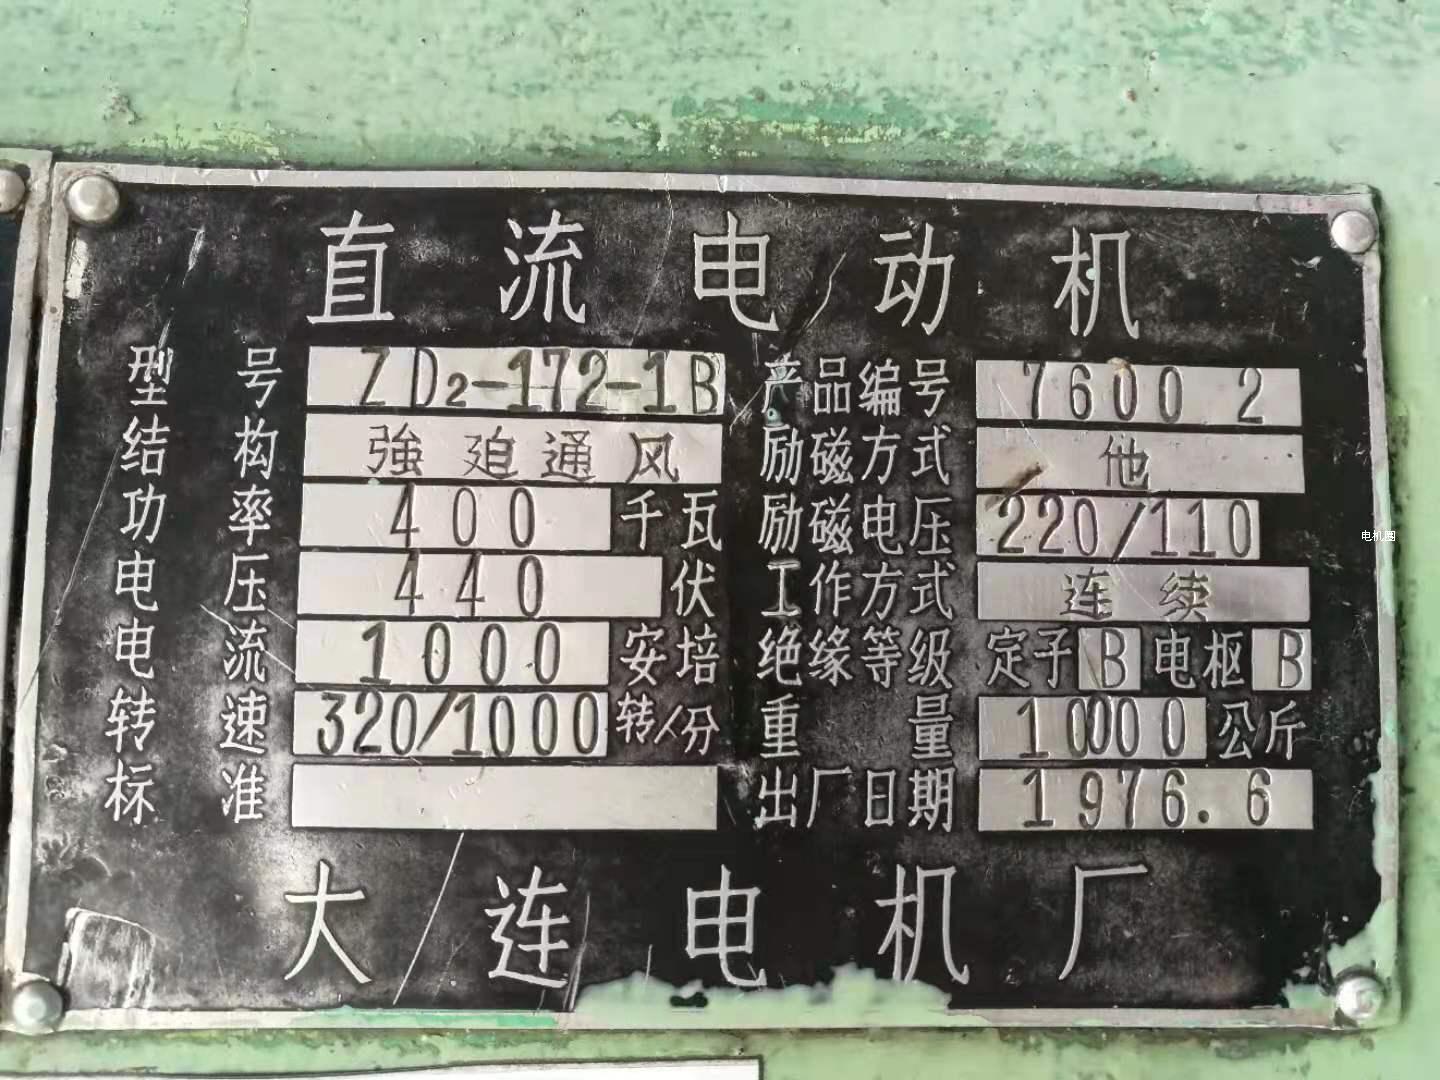 直流电动机
型号 ZD₂-172-1B 产品编号 7600 2
结构 強廹通风 励磁方式 他
功率 400 千瓦 励磁电压 220/110
电压 440 伏 工作方式 连续
电流 1000 安培 绝缘等级 定子 B 电枢 B
转速 320/1000 转/分 重量 10000 公斤
标准 出厂日期 1976.6
大连电机厂
电机圈